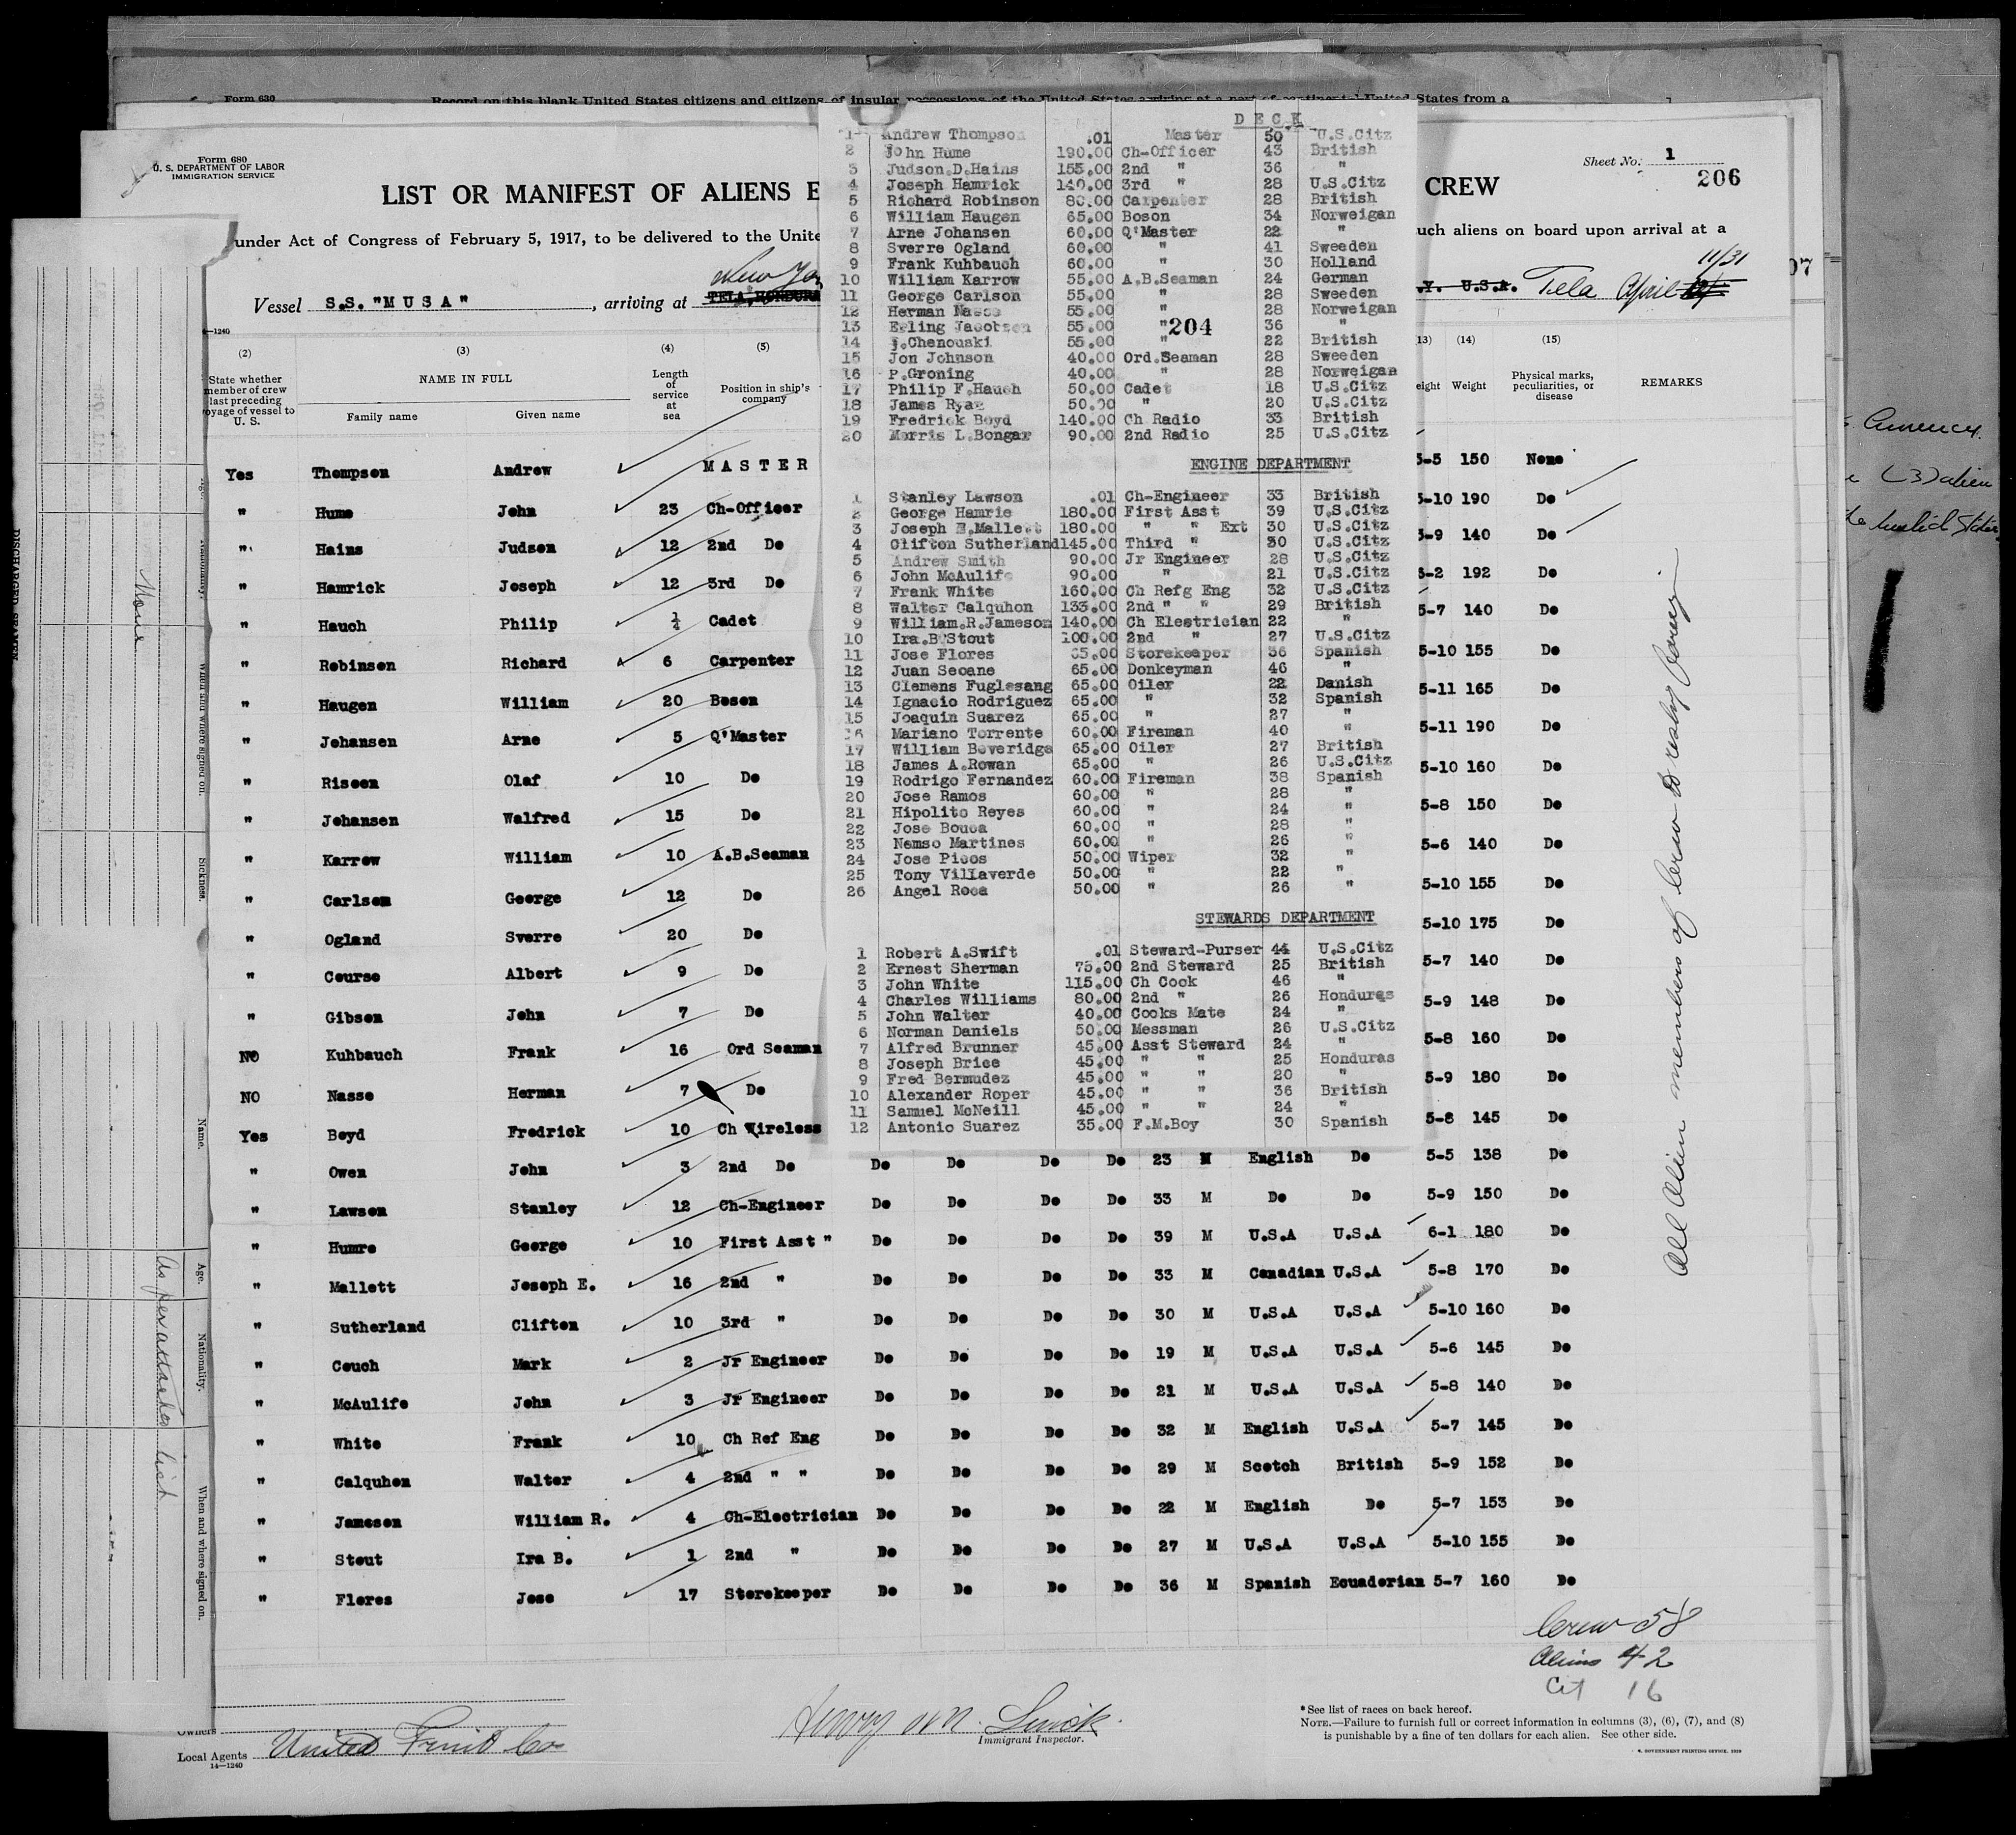 Form 630
Record on this blank United States citizens and citizens of insular possessions of the United States arriving at a port of continental United States from a
Form 680
U. S. DEPARTMENT OF LABOR
IMMIGRATION SERVICE
Sheet No. 1
206
LIST OR MANIFEST OF ALIENS E
CREW
under Act of Congress of February 5, 1917, to be delivered to the Unite
uch aliens on board upon arrival at a
Vessel S.S. "MUSA", arriving at TELA, HONDURA
New Yor
.Y. U.S.A. Tela April
11/31
07
14—1240
(2) (3) (4) (5)
State whether member of crew last preceding voyage of vessel to U. S.
NAME IN FULL
Family name Given name
Length of service at sea
Position in ship's company
13) (14) (15)
eight Weight Physical marks, peculiarities, or disease REMARKS
DECK
1 Andrew Thompson .01 Master 50 U.S.Citz
2 John Hume 190.00 Ch-Officer 43 British
3 Judson.D.Hains 155.00 2nd " 36 "
4 Joseph Hamrick 140.00 3rd " 28 U.S.Citz
5 Richard Robinson 80.00 Carpenter 28 British
6 William Haugen 65.00 Boson 34 Norweigan
7 Arne Johansen 60.00 Q'Master 22 "
8 Sverre Ogland 60.00 " 41 Sweeden
9 Frank Kuhbauch 60.00 " 30 Holland
10 William Karrow 55.00 A.B.Seaman 24 German
11 George Carlson 55.00 " 28 Sweeden
12 Herman Nasse 55.00 " 28 Norweigan
13 Erling Jacobsen 55.00 " 36 "
204
14 J.Chenouski 55.00 " 22 British
15 Jon Johnson 40.00 Ord.Seaman 28 Sweeden
16 P.Groning 40.00 " 28 Norweigan
17 Philip F.Hauch 50.00 Cadet 18 U.S.Citz
18 James Ryan 50.00 " 20 U.S.Citz
19 Fredrick Boyd 140.00 Ch Radio 33 British
20 Morris L.Bongar 90.00 2nd Radio 25 U.S.Citz
ENGINE DEPARTMENT
1 Stanley Lawson .01 Ch-Engineer 33 British
2 George Hamrie 180.00 First Asst 39 U.S.Citz
3 Joseph E.Mallett 180.00 " " Ext 30 U.S.Citz
4 Clifton Sutherland 145.00 Third " 30 U.S.Citz
5 Andrew Smith 90.00 Jr Engineer 28 U.S.Citz
6 John McAulife 90.00 " 21 U.S.Citz
7 Frank White 160.00 Ch Refg Eng 32 U.S.Citz
8 Walter Calquhon 133.00 2nd " " 29 British
9 William.R.Jameson 140.00 Ch Electrician 22 "
10 Ira.B.Stout 100.00 2nd " 27 U.S.Citz
11 Jose Flores 65.00 Storekeeper 36 Spanish
12 Juan Seoane 65.00 Donkeyman 46 "
13 Clemens Fuglesang 65.00 Oiler 22 Danish
14 Ignacio Rodriguez 65.00 " 32 Spanish
15 Joaquin Suarez 65.00 " 27 "
16 Mariano Torrente 60.00 Fireman 40 "
17 William Beveridge 65.00 Oiler 27 British
18 James A.Rowan 65.00 " 26 U.S.Citz
19 Rodrigo Fernandez 60.00 Fireman 38 Spanish
20 Jose Ramos 60.00 " 28 "
21 Hipolito Reyes 60.00 " 24 "
22 Jose Bouca 60.00 " 28 "
23 Nemso Martines 60.00 " 26 "
24 Jose Picos 50.00 Wiper 32 "
25 Tony Villaverde 50.00 " 22 "
26 Angel Roca 50.00 " 26 "
STEWARDS DEPARTMENT
1 Robert A.Swift .01 Steward-Purser 44 U.S.Citz
2 Ernest Sherman 75.00 2nd Steward 25 British
3 John White 115.00 Ch Cook 46 "
4 Charles Williams 80.00 2nd " 26 Honduras
5 John Walter 40.00 Cooks Mate 24 "
6 Norman Daniels 50.00 Messman 26 U.S.Citz
7 Alfred Brunner 45.00 Asst Steward 24 "
8 Joseph Brice 45.00 " " 25 Honduras
9 Fred Bermudez 45.00 " " 20 "
10 Alexander Roper 45.00 " " 36 British
11 Samuel McNeill 45.00 " " 24 "
12 Antonio Suarez 35.00 F.M.Boy 30 Spanish
Yes Thompson Andrew MASTER 5-5 150 None
" Hume John 23 Ch-Officer 5-10 190 Do
" Hains Judson 12 2nd Do 5-9 140 Do
" Hamrick Joseph 12 3rd Do 6-2 192 Do
" Hauch Philip ¼ Cadet 5-7 140 Do
" Robinson Richard 6 Carpenter 5-10 155 Do
" Haugen William 20 Boson 5-11 165 Do
" Johansen Arne 5 Q'Master 5-11 190 Do
" Riseen Olaf 10 Do 5-10 160 Do
" Johansen Walfred 15 Do 5-8 150 Do
" Karrow William 10 A.B.Seaman 5-6 140 Do
" Carlson George 12 Do 5-10 155 Do
" Ogland Sverre 20 Do 5-10 175 Do
" Course Albert 9 Do 5-7 140 Do
" Gibson John 7 Do 5-9 148 Do
NO Kuhbauch Frank 16 Ord Seaman 5-8 160 Do
NO Nasse Herman 7 Do 5-9 180 Do
Yes Boyd Fredrick 10 Ch Wireless 5-8 145 Do
" Owen John 3 2nd Do Do Do Do Do 23 M English Do 5-5 138 Do
" Lawson Stanley 12 Ch-Engineer Do Do Do Do 33 M Do Do 5-9 150 Do
" Humre George 10 First Asst " Do Do Do Do 39 M U.S.A U.S.A 6-1 180 Do
" Mallett Joseph E. 16 2nd " Do Do Do Do 33 M Canadian U.S.A 5-8 170 Do
" Sutherland Clifton 10 3rd " Do Do Do Do 30 M U.S.A U.S.A 5-10 160 Do
" Couch Mark 2 Jr Engineer Do Do Do Do 19 M U.S.A U.S.A 5-6 145 Do
" McAulife John 3 Jr Engineer Do Do Do Do 21 M U.S.A U.S.A 5-8 140 Do
" White Frank 10 Ch Ref Eng Do Do Do Do 32 M English U.S.A 5-7 145 Do
" Calquhon Walter 4 2nd " " Do Do Do Do 29 M Scotch British 5-9 152 Do
" Jameson William R. 4 Ch-Electrician Do Do Do Do 22 M English Do 5-7 153 Do
" Stout Ira B. 1 2nd " Do Do Do Do 27 M U.S.A U.S.A 5-10 155 Do
" Flores Jose 17 Storekeeper Do Do Do Do 36 M Spanish Ecuadorian 5-7 160 Do
All Alien members of crew
Crew 58
Aliens 42
Cit 16
Owners
Local Agents United Fruit Co
14—1240
Immigrant Inspector.
* See list of races on back hereof.
NOTE.—Failure to furnish full or correct information in columns (3), (6), (7), and (8)
is punishable by a fine of ten dollars for each alien. See other side.
U. S. GOVERNMENT PRINTING OFFICE. 1929
DISCHARGED SEAMEN
None
Nationality.
When and where signed on.
Sickness.
Name.
Age.
Nationality.
When and where signed on.
As per attached list
(3) alien
United States